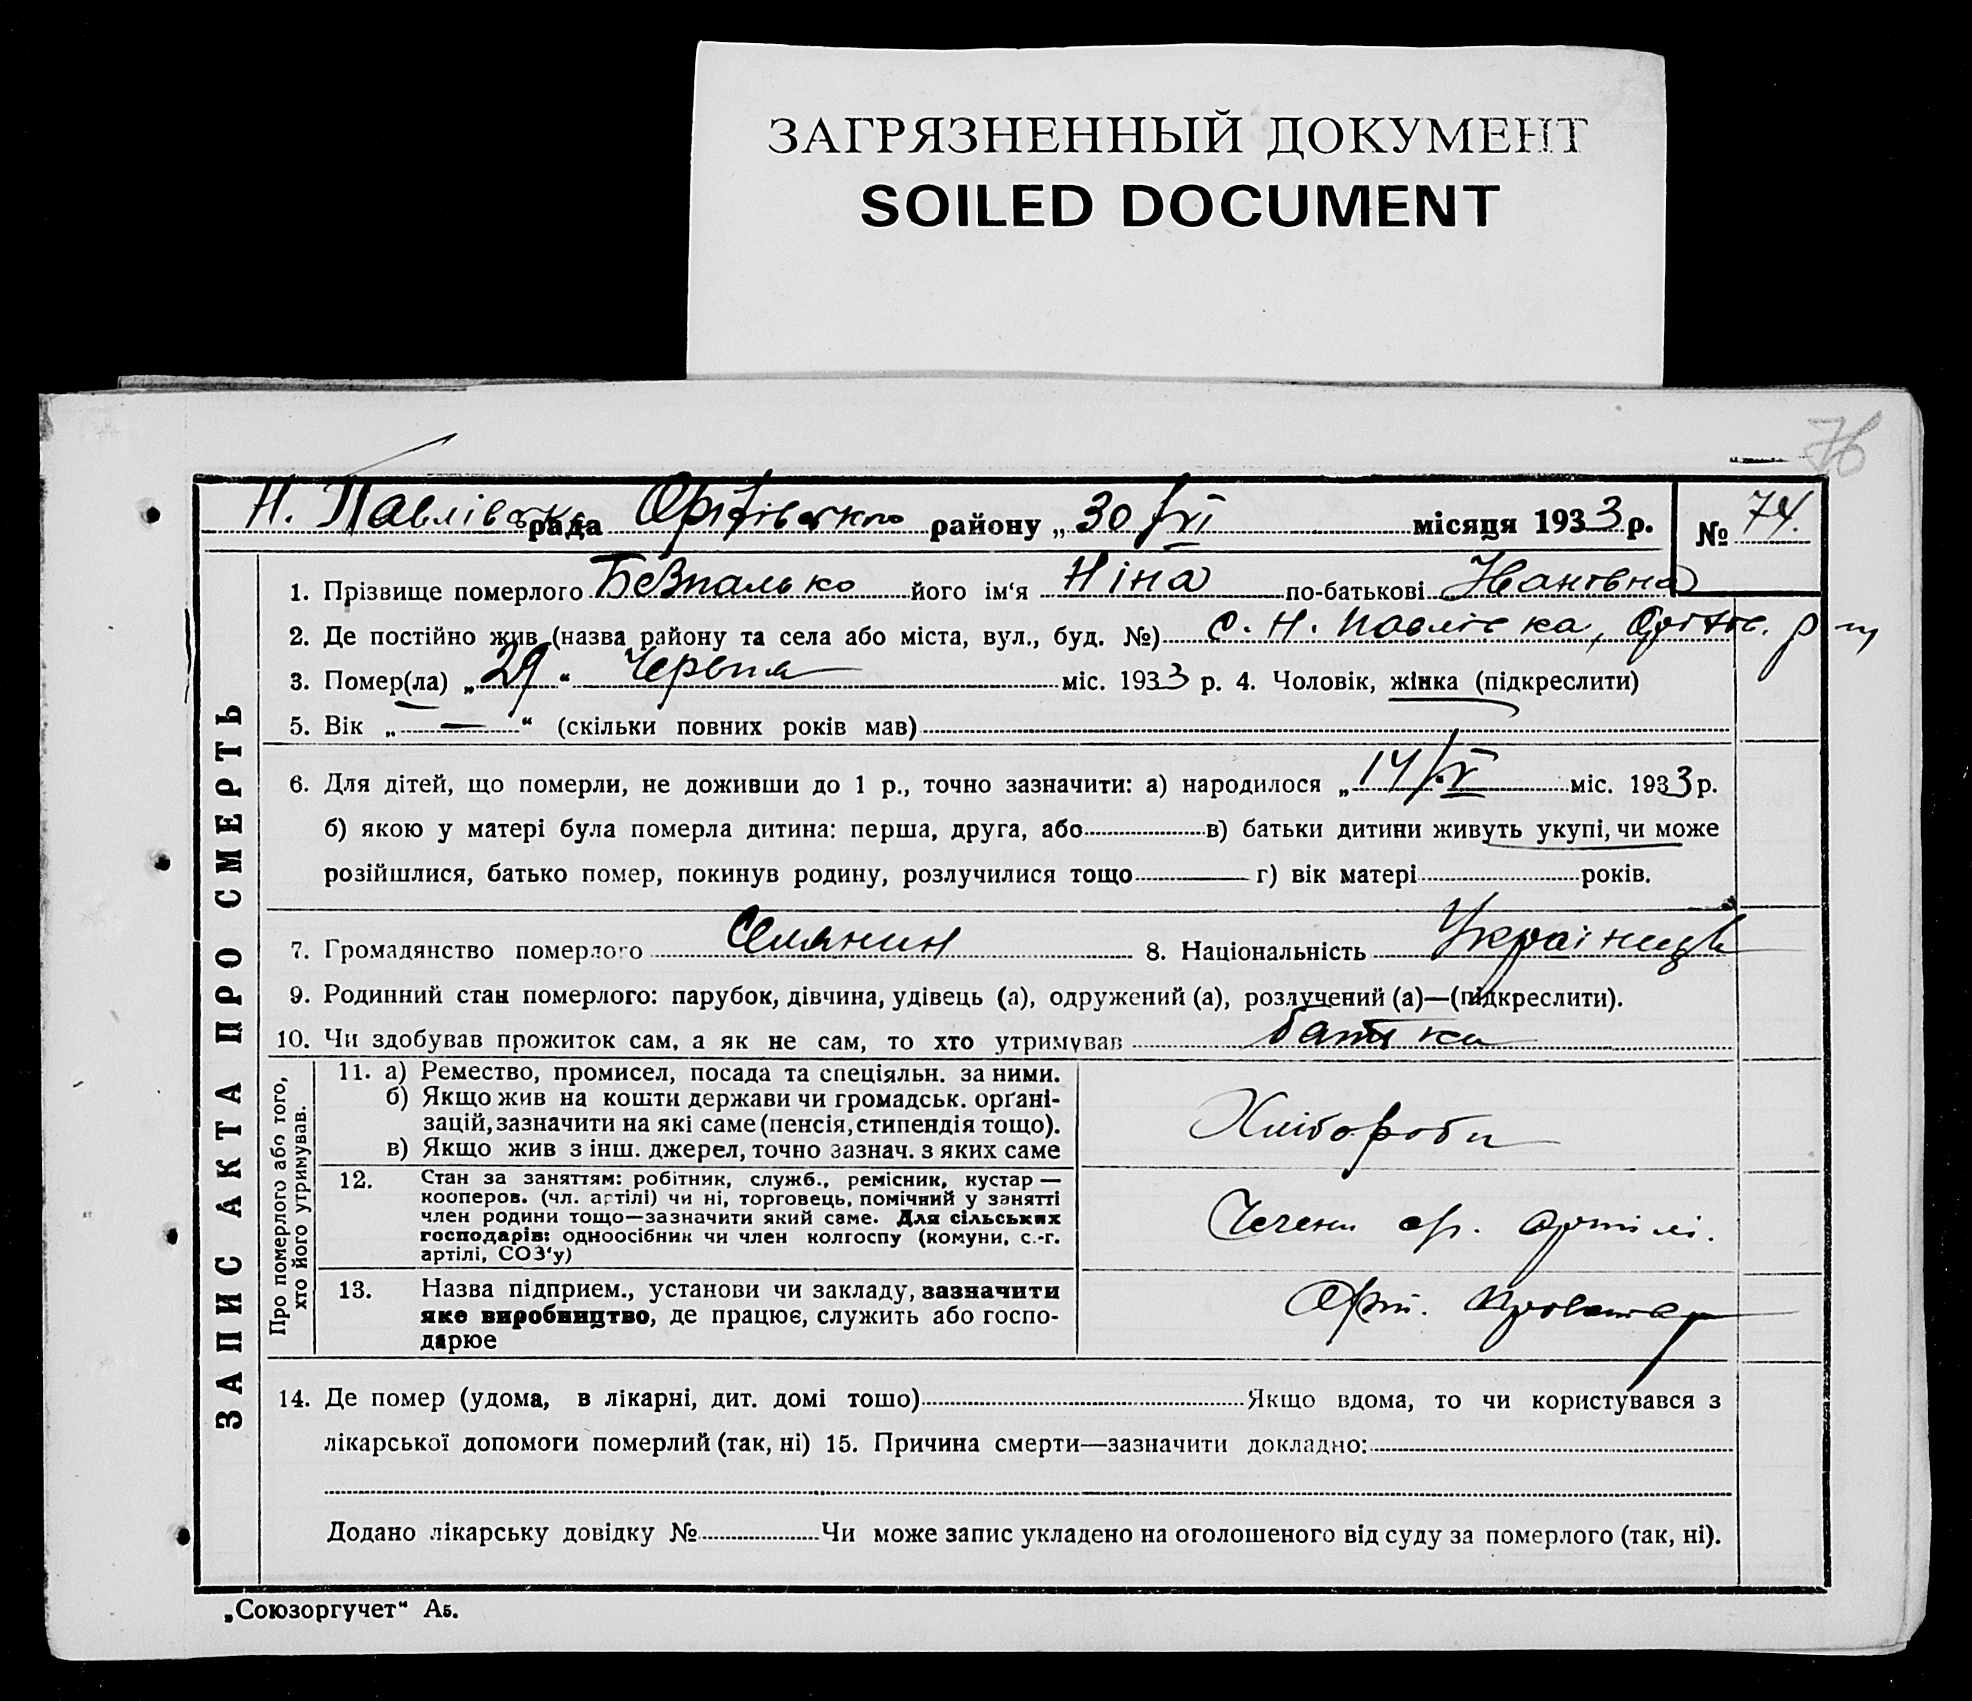 ЗАГРЯЗНЕННЫЙ ДОКУМЕНТ
SOILED DOCUMENT
76
Н. Павлівська рада Оріхівського району „30/VI місяця 1933 р. № 74.
ЗАПИС АКТА ПРО СМЕРТЬ
1. Прізвище померлого Безпалько його ім‘я Ніна по-батькові Івановна
2. Де постійно жив (назва району та села або міста, вул., буд. №) с. Н. Павлівка,
3. Помер(ла) „29“ Червня міс. 1933 р. 4. Чоловік, жінка (підкреслити)
5. Вік „—“ (скільки повних років мав)
6. Для дітей, що померли, не доживши до 1 р., точно зазначити: а) народилося „14/V міс. 1933 р.
б) якою у матері була померла дитина: перша, друга, або в) батьки дитини живуть укупі, чи може
розійшлися, батько помер, покинув родину, розлучилися тощо г) вік матері років.
7. Громадянство померлого Селянин 8. Національність Українець
9. Родинний стан померлого: парубок, дівчина, удівець (а), одружений (а), розлучений (а)—(підкреслити).
10. Чи здобував прожиток сам, а як не сам, то хто утримував батьки
Про померлого або того,
хто його утримував.
11. а) Ремество, промисел, посада та спеціяльн. за ними.
б) Якщо жив на кошти держави чи громадськ. орґані-
зацій, зазначити на які саме (пенсія, стипендія тощо).
в) Якщо жив з інш. джерел, точно зазнач. з яких саме
Хлібороби
12. Стан за заняттям: робітник, служб., ремісник, кустар —
кооперов. (чл. артілі) чи ні, торговець, помічний у занятті
член родини тощо—зазначити який саме. Для сільських
господарів: одноосібник чи член колгоспу (комуни, с.-г.
артілі, СОЗ‘у)
артілі.
13. Назва підприєм., установи чи закладу, зазначити
яке виробництво, де працює, служить або госпо-
дарює
Арт. Пролетар
14. Де помер (удома, в лікарні, дит. домі тощо) Якщо вдома, то чи користувався з
лікарської допомоги померлий (так, ні) 15. Причина смерти—зазначити докладно:
Додано лікарську довідку № Чи може запис укладено на оголошеного від суду за померлого (так, ні).
„Союзоргучет“ А5.